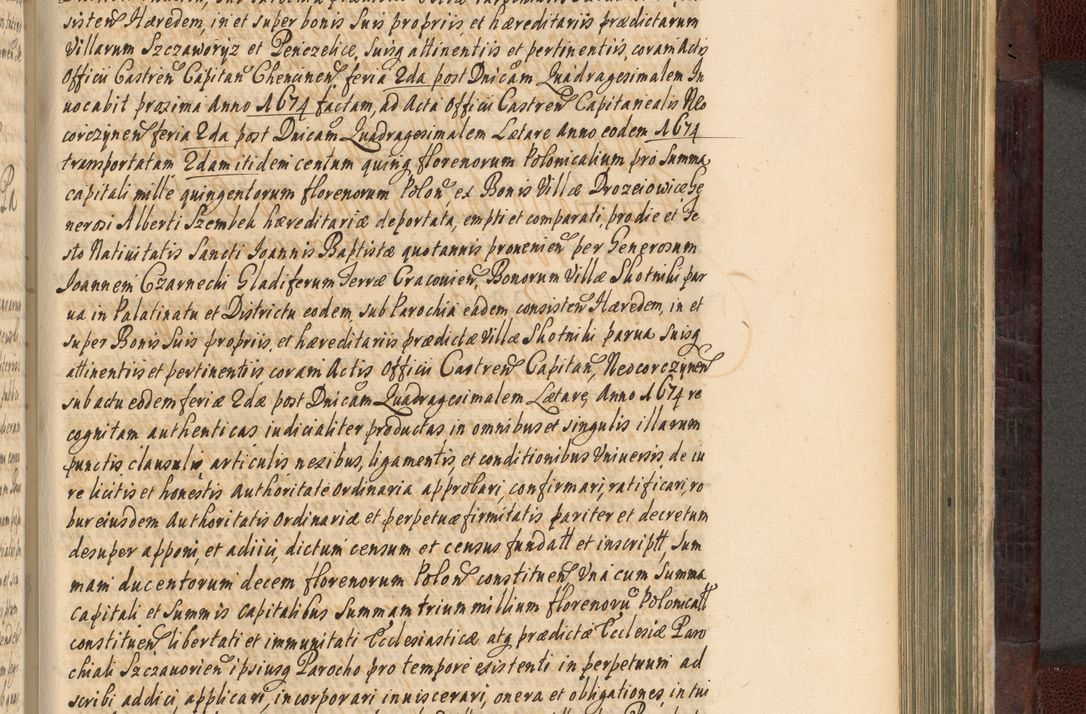 sisten Hæredem, in et super bonis suis propriis, et hæreditariis prædictarum
Villarum Szczaworyz et Penczelice, suisq attinentiis et pertinentiis, coram Actis
Officii Castren Capitan Chencinen feria 2da post Dnicam Quadragesimalem In
uocabit proxima Anno 1674 factam, ad Acta Officii Castren Capitanealis Neo
corczynen feria 2da post Dnicam Quadragesimalem Lætare Anno eodem 1674
transportatam 2dam itidem centum quinq florenorum Polonicalium pro Summa
capitali mille quingentorum florenorum Polon ex Bonis Villæ Drozeiowice Ge
nerosi Alberti Szembek hæreditariæ deportata, empti et comparati, pro die et Fe
sto Natiuitatis Sancti Joannis Baptistæ quotannis prouenien per Generosum
Joannem Czarnecki Gladiferum Terræ Cracouien, Bonorum Villæ Skotniki par
ua in Palatinatu et Districtu eodem sub Parochia eadem consisten Hæredem, in et
super Bonis suis propriis, et hæreditariis prædictæ Villæ Skotniki parua suisq
attinentiis et pertinentiis coram Actis Officii Castren Capitan, Neocorczynen
sub actu eodem feriæ 2dæ post Dnicam Quadragesimalem Lætare, Anno 1674 re
cognitam authenticas iudicialiter productas in omnibus et singulis illarum
punctis clausulis, articulis nexibus, ligamentis, et conditionibus Vniuersis, de iu
re licitis et honestis Authoritate ordinaria approbari, confirmari, ratificari, ro
bur eiusdem Authoritatis Ordinariæ et perpetuæ firmitatis pariter et decretum
desuper apponi, et adiici, dictum censum et census fundatt et inscriptt, Sum
mam ducentorum decem florenorum Polon constituen Vna cum Summa
capitali et Summis capitalibus Summam trium millium florenoru Polonicatt
constituen libertati et immunitati Ecclesiasticæ atq prædictæ Ecclesiæ Paro
chiali Szczauorien ipsiusq Parocho pro tempore existenti in perpetuum ad
scribi addici, applicari, incorporari inuiscerari, onera et obligationes, in tui